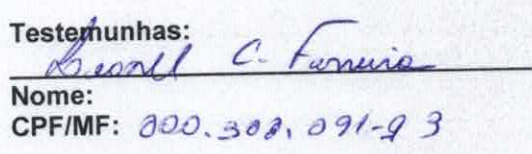 Testemunhas:
C. Ferreira
Nome:
CPF/MF: 000.302.091-93